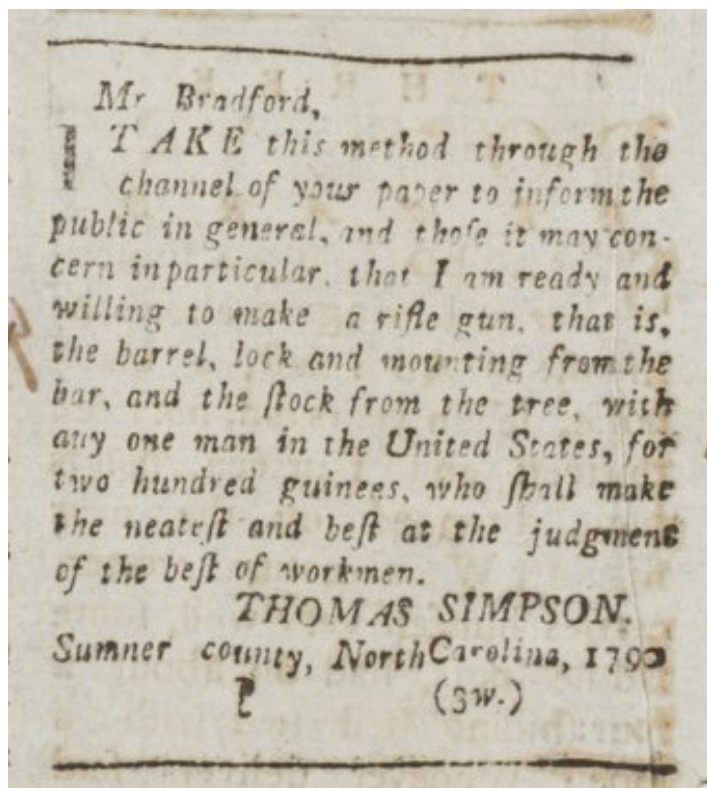 Mr Bradford,
I TAKE this method through the
channel of your paper to inform the
public in general, and thoſe it may con-
cern in particular, that I am ready and
willing to make a rifle gun, that is,
the barrel, lock and mounting from the
bar, and the ſtock from the tree, with
any one man in the United States, for
two hundred guinees, who ſhall make
the neateſt and beſt at the judgment
of the beſt of workmen.
THOMAS SIMPSON.
Sumner county, North Carolina, 1790
(3w.)